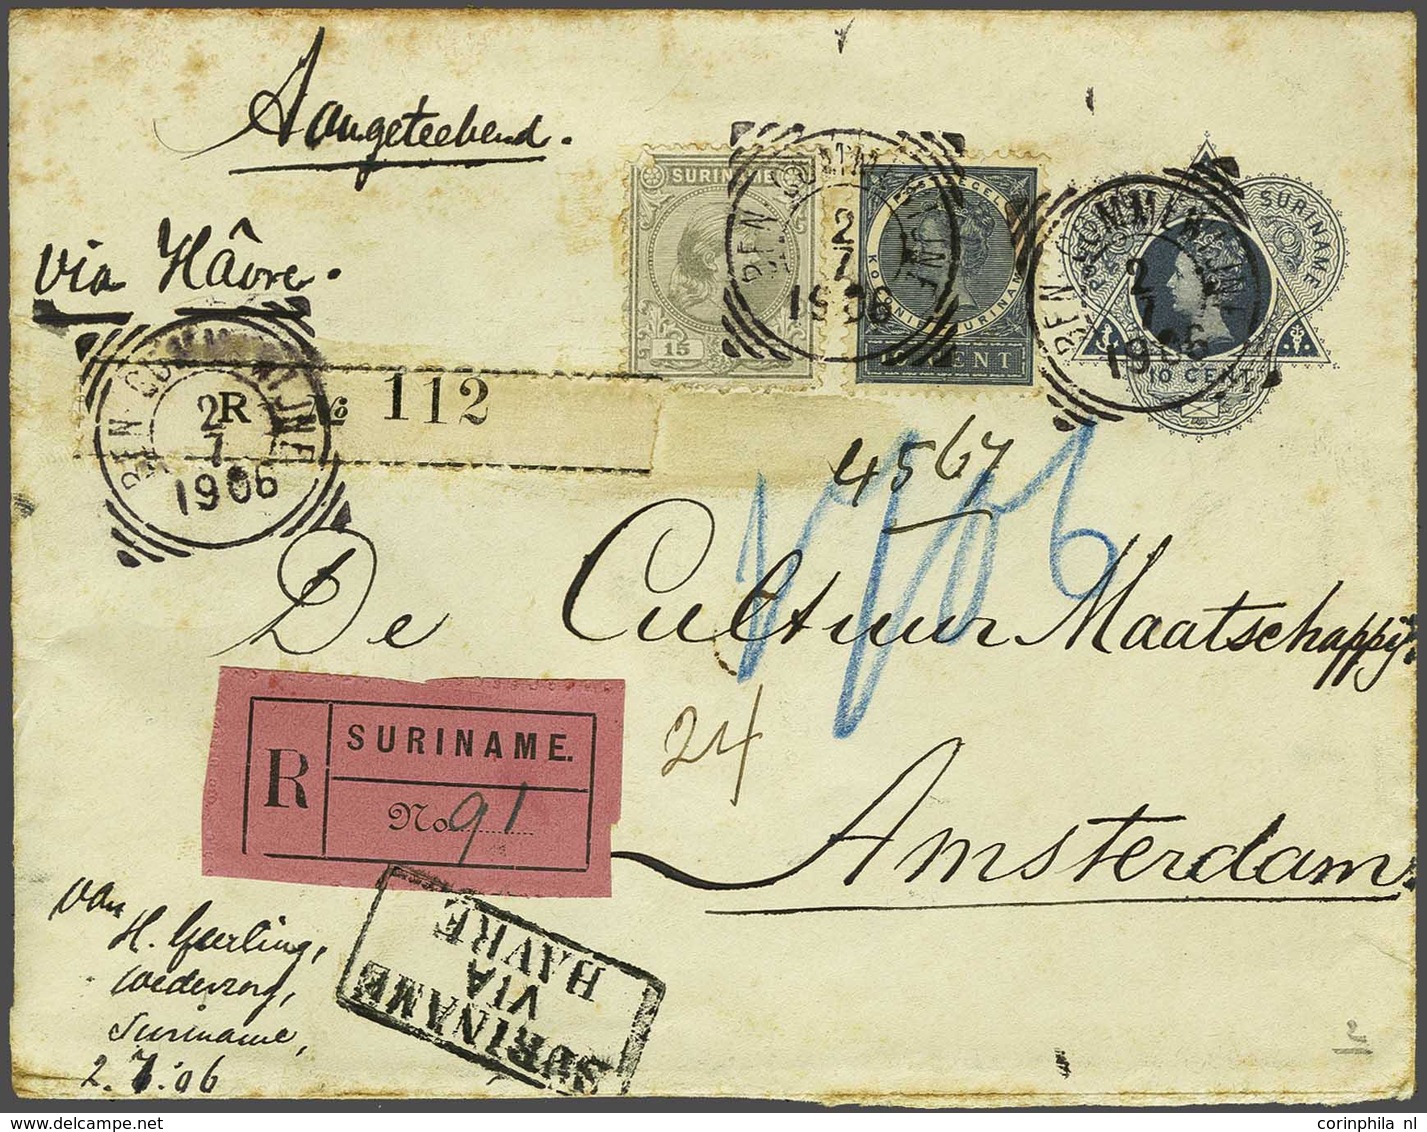 Aangeteekend.
via Hâvre.
SURINAME
15
POSTZEGEL
KOLONIE SURINAME
CENT
SURINAME
10 CENT
BEN. COMMEWIJNE
2
7
1906
BEN. COMMEWIJNE
2
7
1906
BEN. COMMEWIJNE
2
7
1906
R № 112
4567
De Cultuur Maatschappij
Amsterdam
24
R
SURINAME.
No 91
SURINAME
VIA
HAVRE
van
H. Geerling,
Wederzorg,
Suriname,
2.7.06
2
corinphila nl